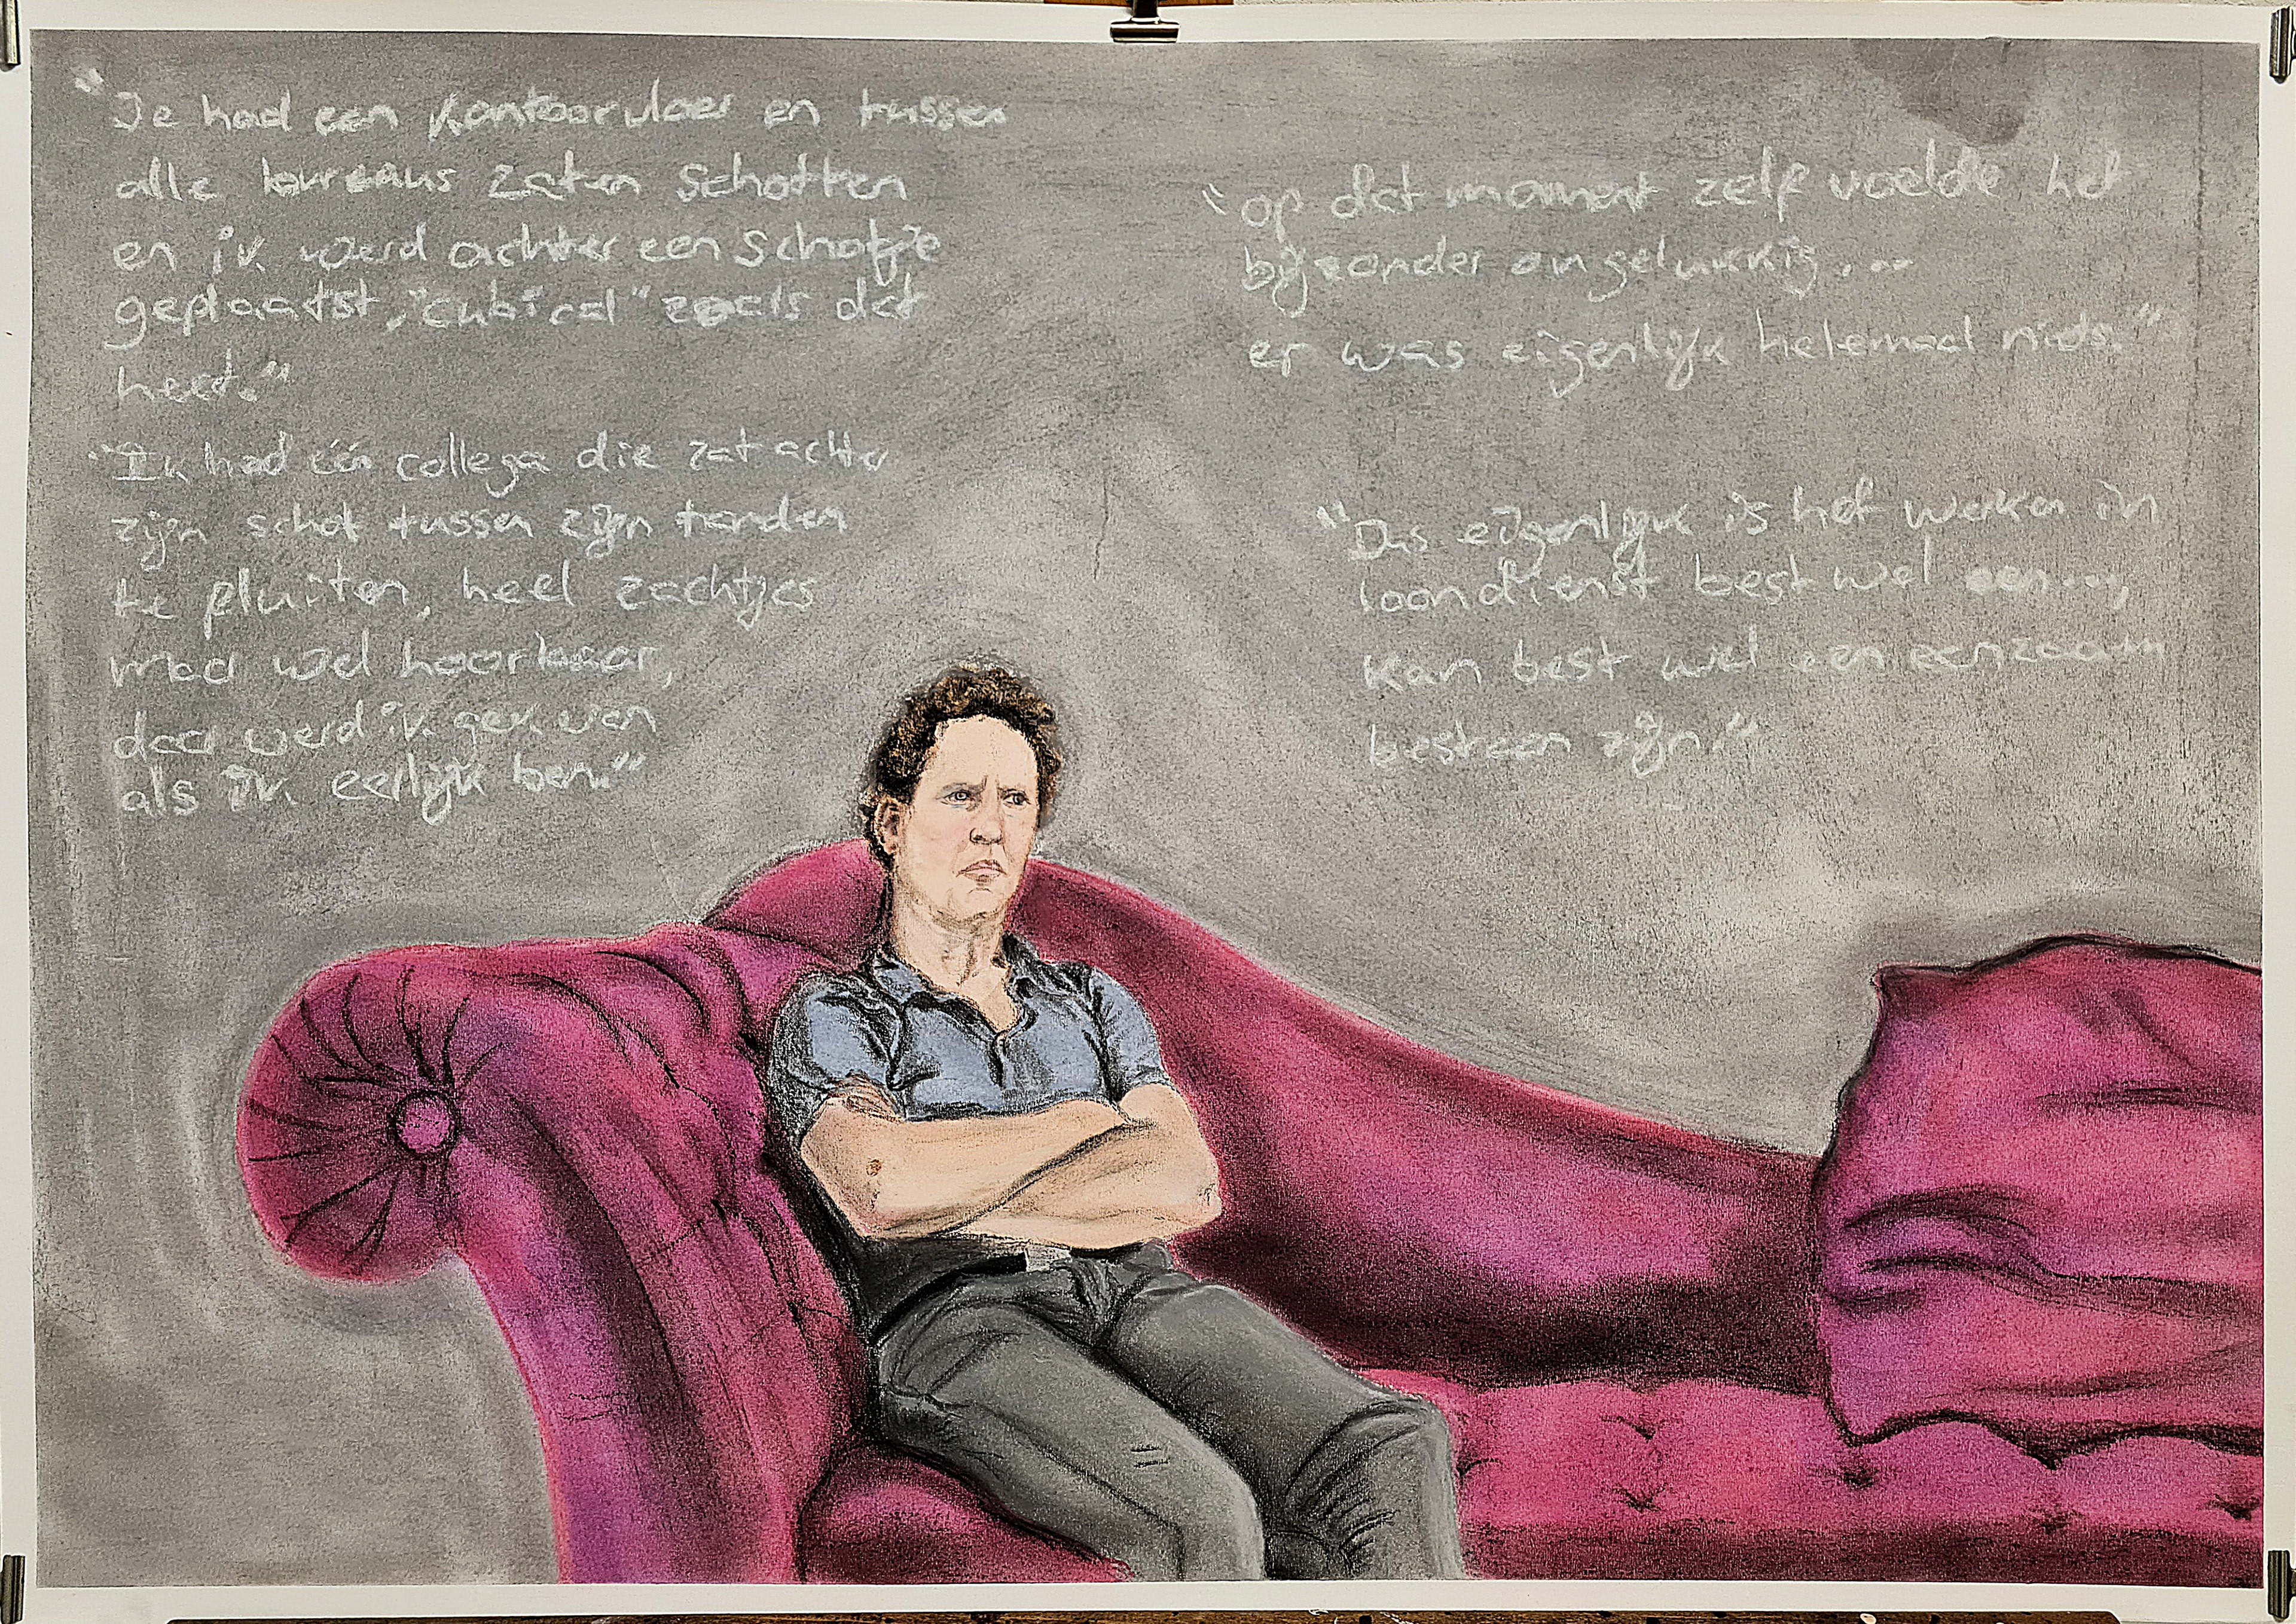 "Je had een kantoorvloer en tussen
alle bureaus zaten schotten
en ik werd achter een schotje
geplaatst, "cubical" zoals dat
heet."
"Ik had één collega die zat achter
zijn schot tussen zijn tanden
te fluiten, heel zachtjes
maar wel hoorbaar,
daar werd ik gek van
als ik eerlijk ben."
"op dat moment zelf voelde het
bijzonder ongelukkig...
er was eigenlijk helemaal niets."
"Dus eigenlijk is het werken in
loondienst best wel een...,
kan best wel een eenzaam
bestaan zijn."